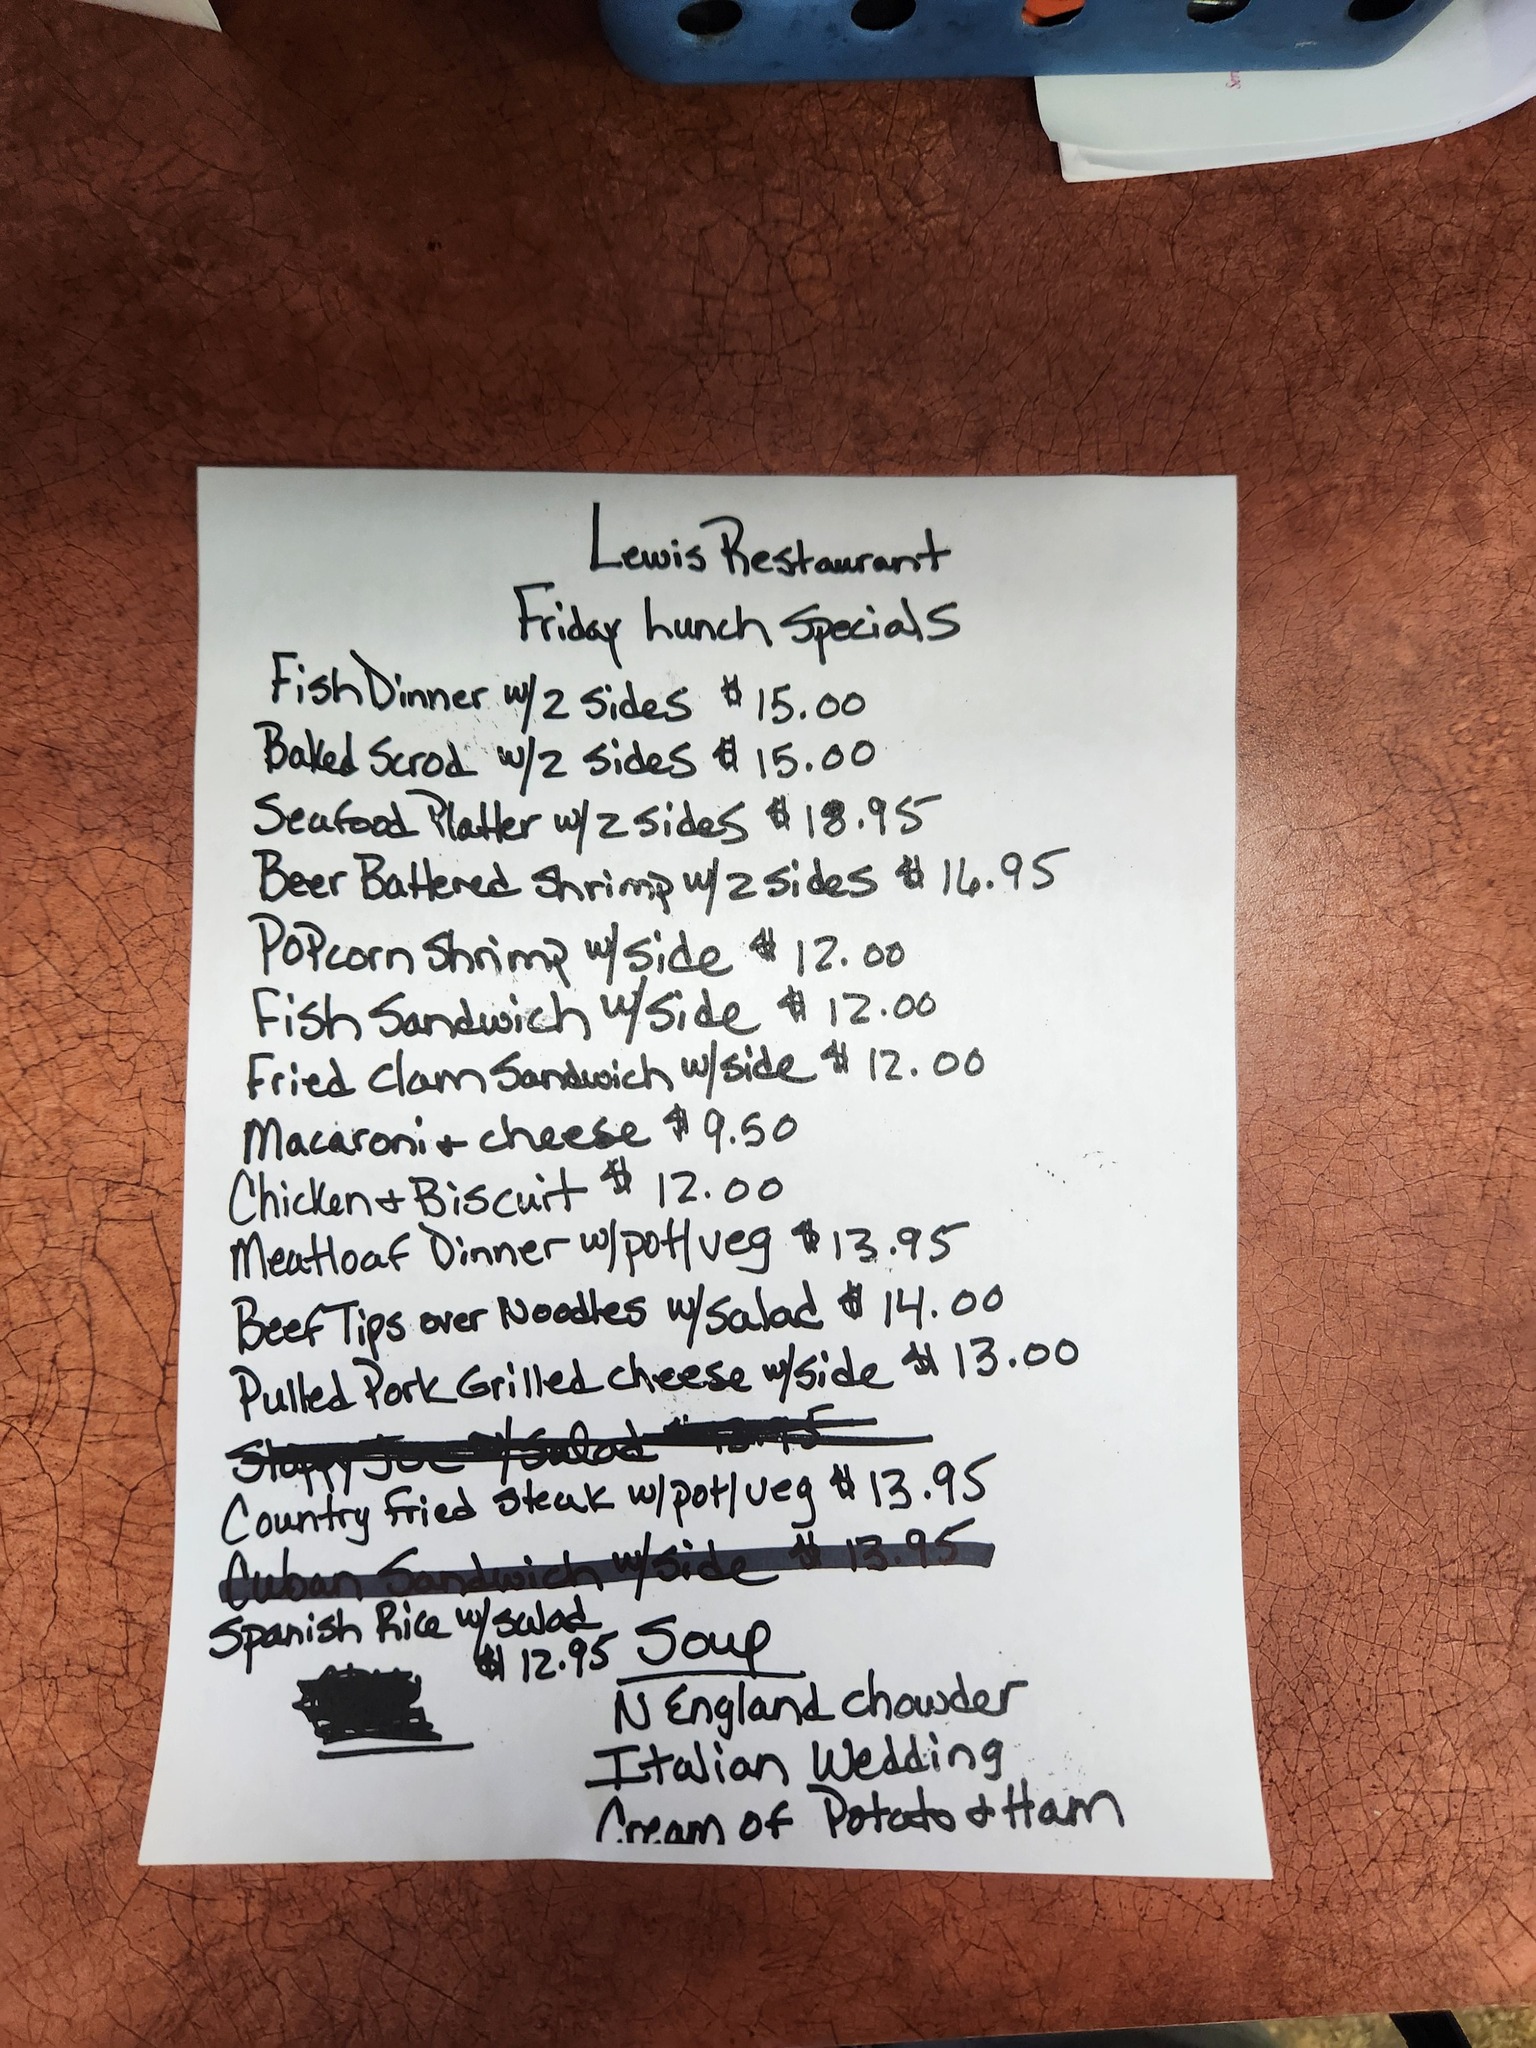 Lewis Restaurant
Friday Lunch Specials
Fish Dinner w/2 sides $15.00
Baked Scrod w/2 sides $15.00
Seafood Platter w/2 sides $18.95
Beer Battered Shrimp w/2 sides $16.95
Popcorn Shrimp w/side $12.00
Fish Sandwich w/side $12.00
Fried Clam Sandwich w/side $12.00
Macaroni + cheese $9.50
Chicken + Biscuit $12.00
Meatloaf Dinner w/pot/veg $13.95
Beef Tips over Noodles w/salad $14.00
Pulled Pork Grilled cheese w/side $13.00
Sloppy Joe w/Salad
Country Fried Steak w/pot/veg $13.95
Cuban Sandwich w/side $13.95
Spanish Rice w/salad
$12.95
Soup
N England Chowder
Italian Wedding
Cream of Potato + Ham